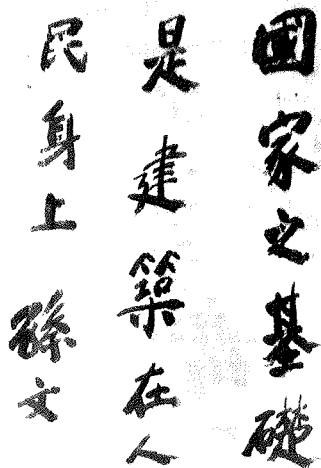 國家之基礎
是建築在人
民身上
孫文